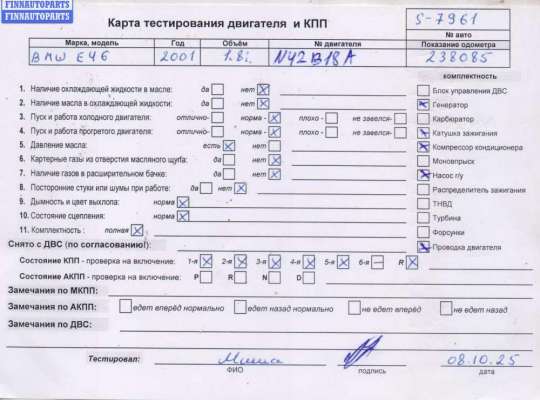 FINNAUTOPARTS
FINNAUTOPARTS
Карта тестирования двигателя и КПП
S-7961
№ авто
Марка, модель Год Объём № двигателя Показание одометра
BMW E46 2001 1.8i N42B18A 238085
комплектность
1. Наличие охлаждающей жидкости в масле: да нет Блок управления ДВС
2. Наличие масла в охлаждающей жидкости: да нет Генератор
3. Пуск и работа холодного двигателя: отлично- норма - плохо - не завелся- Карбюратор
4. Пуск и работа прогретого двигателя: отлично- норма - плохо - не завелся- Катушка зажигания
5. Давление масла: есть нет Компрессор кондиционера
6. Картерные газы из отверстия масляного щупа: да нет Моновпрыск
7. Наличие газов в расширительном бачке: да нет Насос г/у
8. Посторонние стуки или шумы при работе: да нет Распределитель зажигания
9. Дымность и цвет выхлопа: норма ТНВД
10. Состояние сцепления: норма Турбина
11. Комплектность: полная Форсунки
Снято с ДВС (по согласованию!): Проводка двигателя
Состояние КПП - проверка на включение: 1-я 2-я 3-я 4-я 5-я 6-я R
Состояние АКПП - проверка на включение: P R N D
Замечания по МКПП:
Замечания по АКПП: едет вперёд нормально едет назад нормально не едет вперёд не едет назад
Замечания по ДВС:
Тестировал: Миша 08.10.25
ФИО подпись дата